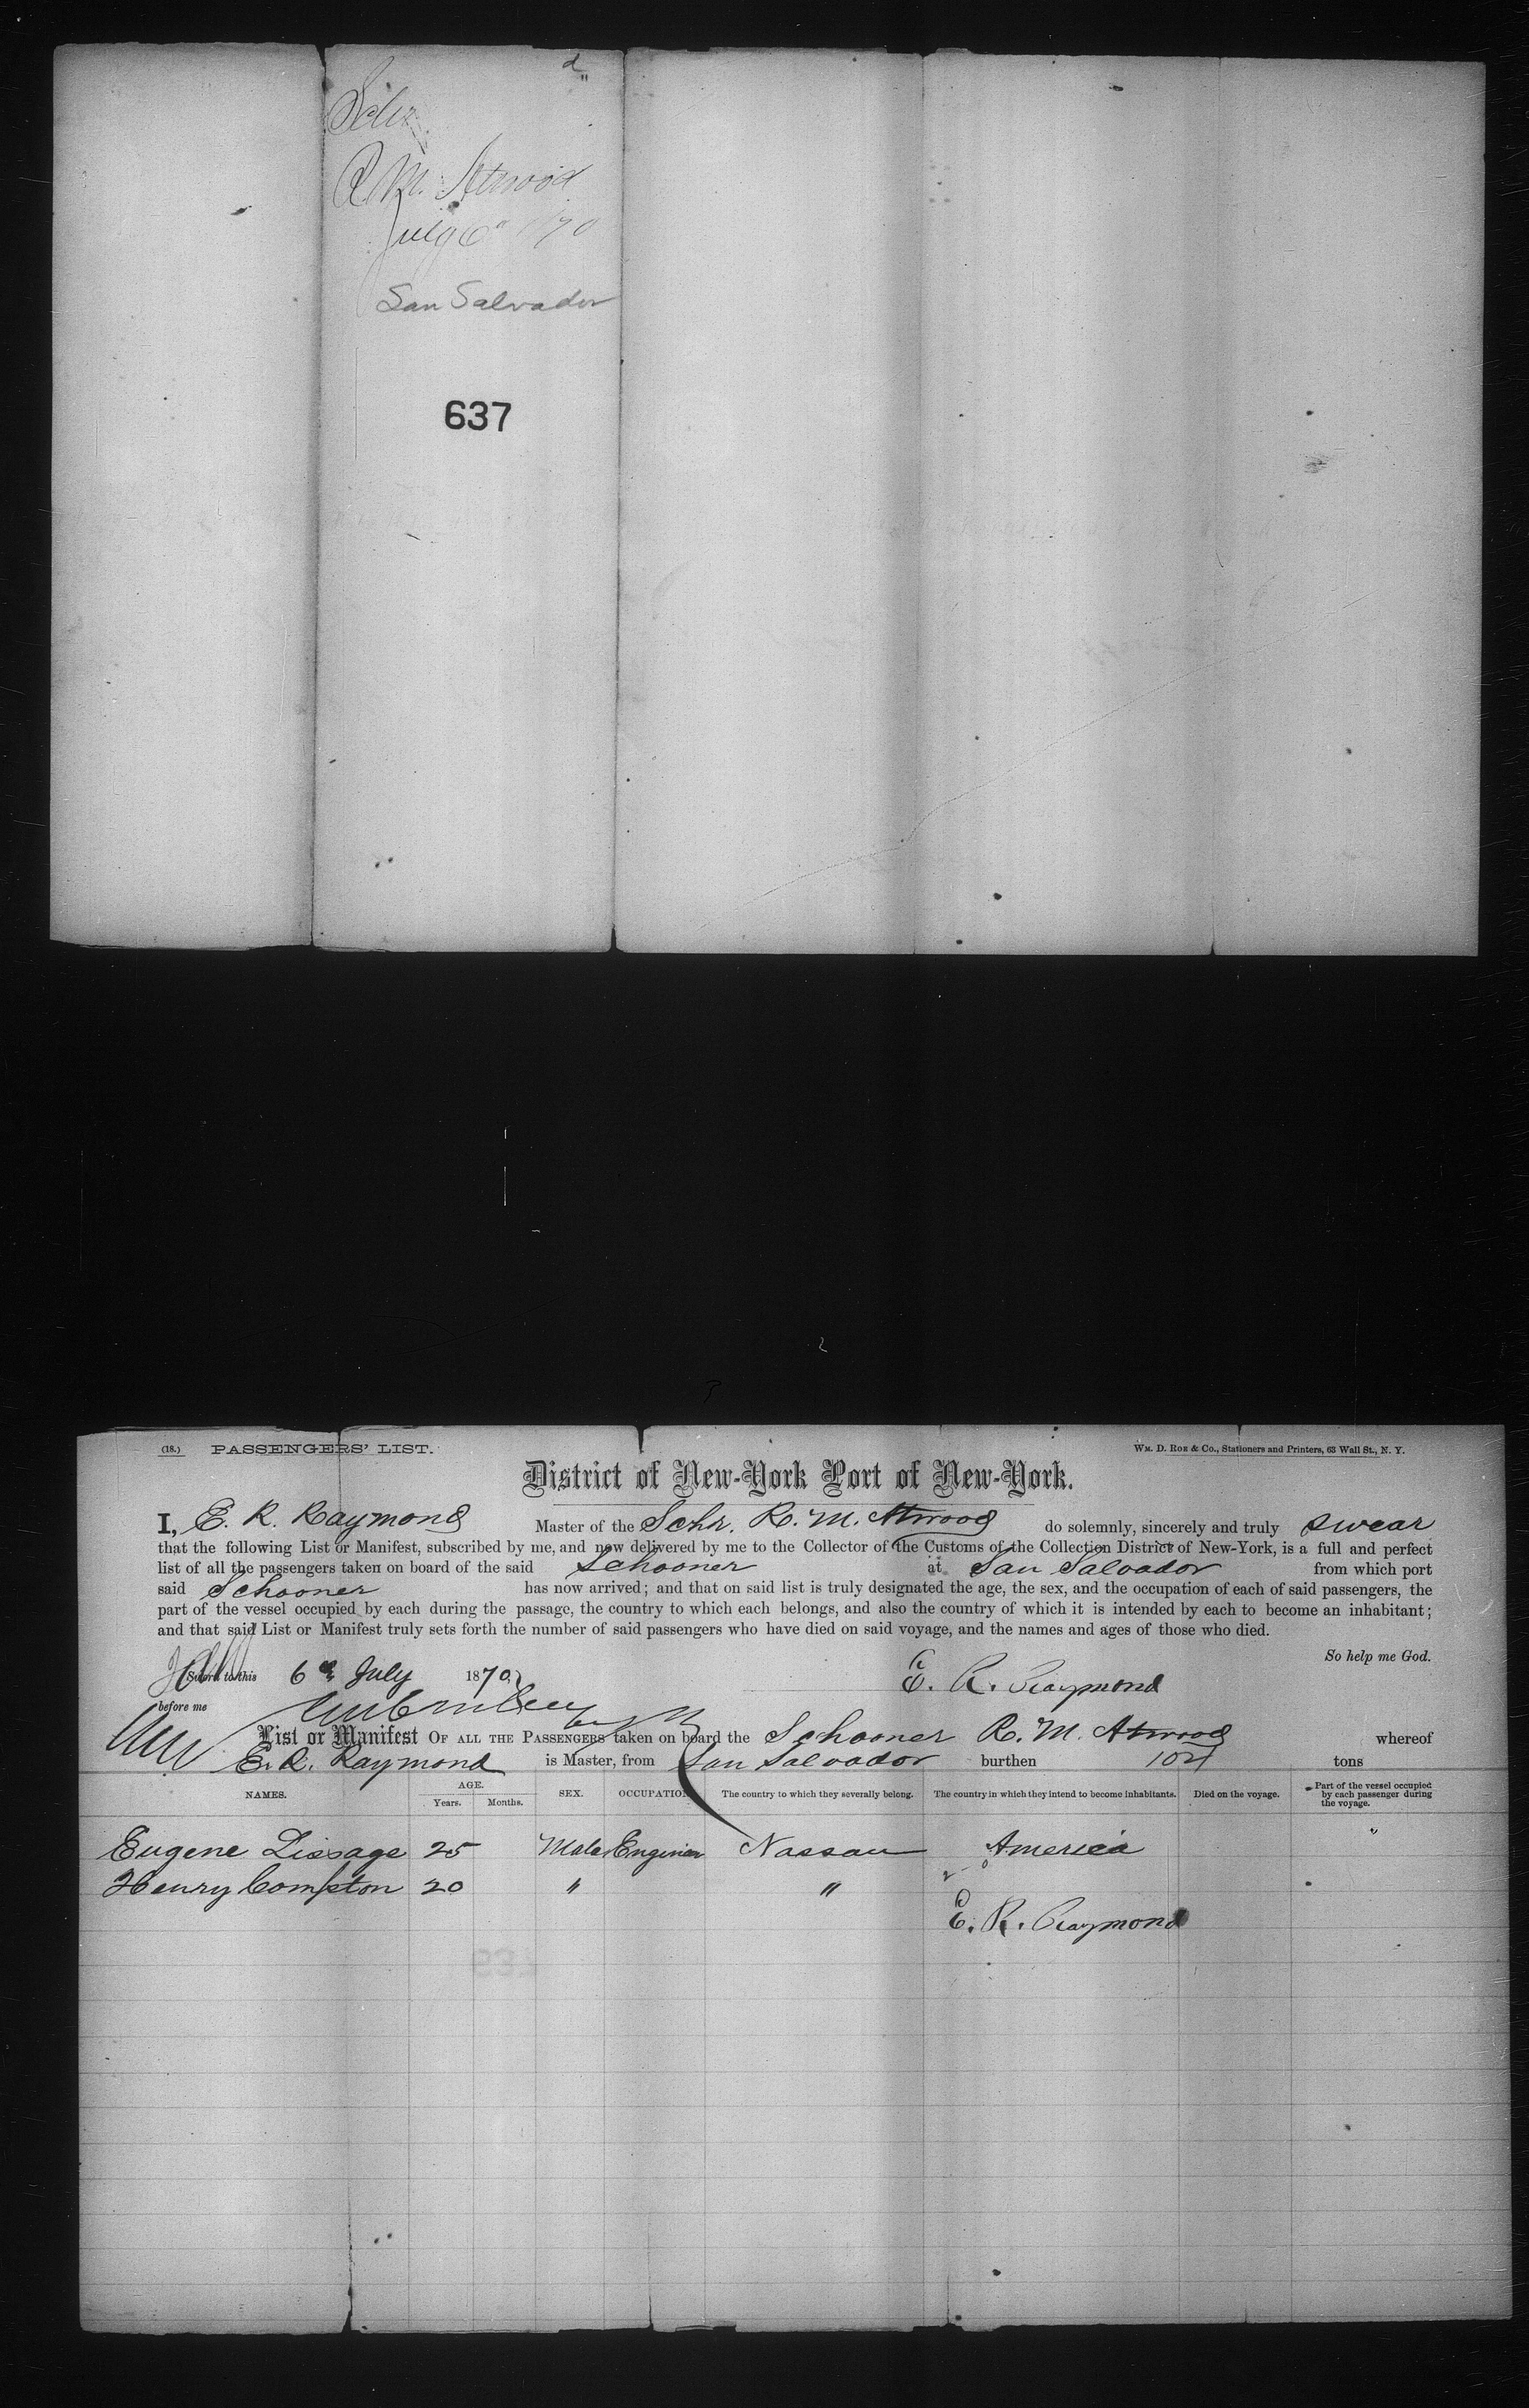 Schr
R. M. Atwood
July 6" 1870
San Salvador
637
(18.) PASSENGERS' LIST. Wm. D. Roe & Co., Stationers and Printers, 63 Wall St., N. Y.
District of New-York Port of New-York.
I, E. R. Raymond Master of the Schr. R. M. Atwood do solemnly, sincerely and truly swear
that the following List or Manifest, subscribed by me, and now delivered by me to the Collector of the Customs of the Collection District of New-York, is a full and perfect
list of all the passengers taken on board of the said Schooner at San Salvador from which port
said Schooner has now arrived; and that on said list is truly designated the age, the sex, and the occupation of each of said passengers, the
part of the vessel occupied by each during the passage, the country to which each belongs, and also the country of which it is intended by each to become an inhabitant;
and that said List or Manifest truly sets forth the number of said passengers who have died on said voyage, and the names and ages of those who died.
So help me God.
Sworn to this 6th July 1870, E. R. Raymond
before me
List or Manifest OF ALL THE PASSENGERS taken on board the Schooner R. M. Atwood whereof
E. R. Raymond is Master, from San Salvador burthen tons
NAMES. AGE. Years. Months. SEX. OCCUPATION The country to which they severally belong. The country in which they intend to become inhabitants. Died on the voyage. Part of the vessel occupied by each passenger during the voyage.
Eugene Lissage 25 Male Engineer Nassau America "
Henry Compton 20 " "
E. R. Raymond